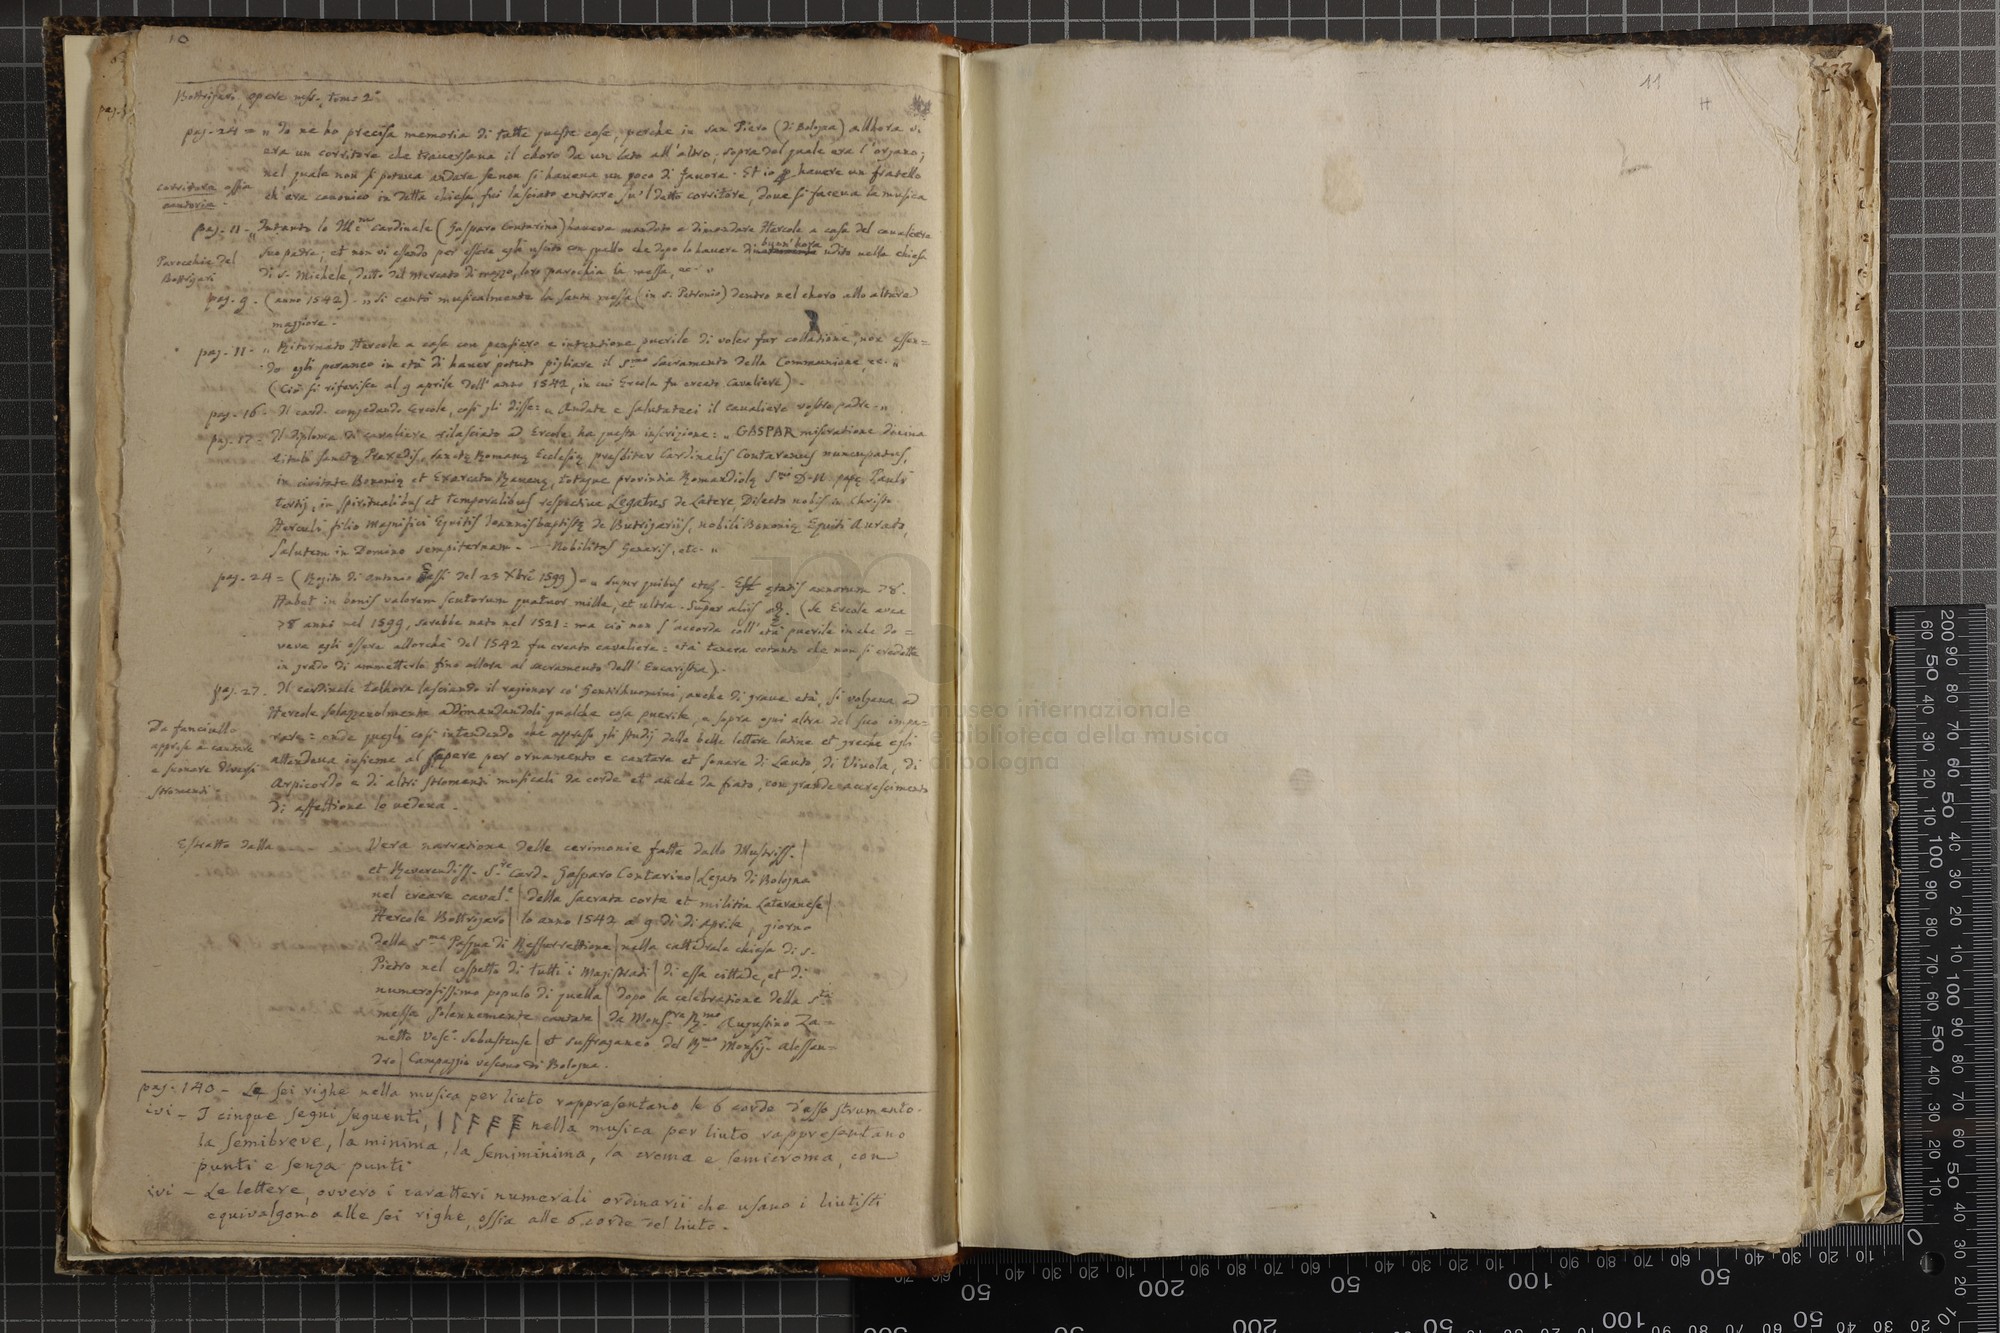 10
Bottrigari, opere mss. tomo 2°
pag. 24 = „ Io ne ho precisa memoria di tutte queste cose, perche in san Piero (di Bologna) allhora vi
era un corritore che traversava il choro da un lato all'altro, sopra del quale era l'organo;
nel quale non si poteva andare se non si haveva un poco di favore. Et io p havere un fratello
ch'era canonico in detta chiesa, fui lasciato entrare su'l detto corritore, dove si faceva la musica
corritore ossia
cantoria.
pag. 11 - „ Intanto lo Ill.mo cardinale (Gasparo Contarino) haveva mandato a dimandare Hercole a casa del cavaliere
suo padre; et non vi essendo per essere egli uscito con quello che dopo lo havere di buon'hora udito nella chiesa
di S. Michele, detto del Mercato di mezzo, loro parochia la messa, ec. „
Parochia del
Bottrigari
pag. 9 - (anno 1542) - „ Si cantò musicalmente la santa messa (in S. Petronio) dentro nel choro allo altare
maggiore.
pag. 11 - „ Ritornato Hercole a casa con pensiero e intentione puerile di voler far collatione, non essen=
do egli peranco in età di haver potuto pigliare il S.mo Sacramento della Communione, ec. „
(Ciò si riferisce al 9 aprile dell'anno 1542, in cui Ercole fu creato cavaliere) -
pag. 16 - Il card. congedando Ercole, così gli disse: „ Andate e salutateci il cavaliere vostro padre. „
pag. 17 - Il diploma di cavaliere rilasciato ad Ercole ha questa inscrizione: „ GASPAR miseratione divina
tituli sanctę Praxedis, sanctę Romanę Ecclesię presbiter Cardinalis Contarenus nuncupatus,
in civitate Bononię et Exarcatu Ravenę, totaque provintia Romandiolę S.mi D. N. papę Pauli
tertij, in spiritualibus et temporalibus respective Legatus de Latere, Dilecto nobis in Christo
Herculi filio Magnifici Equitis Ioannisbaptistę de Butrigariis, nobili Bononię Equiti Aurato,
Salutem in Domino sempiternam. - Nobilitas Generis, etc. „
pag. 24 = (Rogito di Antonio Sassi del 23 Xbre 1599) = „ Super quibus etc. Est ętatis annorum 78.
Habet in bonis valorem scutorum quatuor mille, et ultra. Super aliis etc. (Se Ercole avea
78 anni nel 1599, sarebbe nato nel 1521 = ma ciò non s'accorda coll'età puerile in che do=
veva egli essere allorchè del 1542 fu creato cavaliere = età tenera cotanto che non si credette
in grado di ammetterlo fino allora al sacramento dell'Eucaristia).
pag. 27 - Il cardinale talhora lasciando il ragionar co' Gentilhuomini, anche di grave età, si volgeva ad
Hercole solazzevolmente addimandandoli qualche cosa puerile, e sopra ogni altra del suo impa-
rare = onde quegli così intendendo che appresso gli studij delle belle lettere latine et greche egli
attendeva insieme al sapere per ornamento e cantare et sonare di Lauto, di Vivola, di
Arpicordo e di altri stromenti musicali da corde et anche da fiato, con grande accrescimento
di affettione lo vedeva.
Da fanciullo
apprese a cantare
e suonare diversi
stromenti.
Estratto dalla
Vera narratione delle cerimonie fatte dallo Illustriss. |
et Reverendiss. S.re Card. Gasparo Contarino | Legato di Bologna
nel creare caval.e | della sacrata corte et militia Lateranese |
Hercole Bottrigaro | lo anno 1542 a 9 di di Aprile, giorno
della S.ma Pasqua di Ressurrettione | nella cattedrale chiesa di S.
Pietro nel cospetto di tutti i Magistradi | di essa cittade, et di
numerosissimo populo di quella | dopo la celebratione della S.ta
messa solennemente cantata | da Mons.re R.mo Augustino Za=
netto Vesc. Sebastense | et suffraganeo del R.mo Monsig. Alessan=
dro | Campeggio vescovo di Bologna.
pag. 140 - Le sei righe nella musica per liuto rappresentano le 6 corde d'esso strumento.
ivi - I cinque segni seguenti, nella musica per liuto rappresentano
la semibreve, la minima, la semiminima, la croma e semicroma, con
punti e senza punti.
ivi - Le lettere, ovvero i caratteri numerali ordinarii che usano i liutisti
equivalgono alle sei righe, ossia alle 6 corde del liuto.
11
museo internazionale
e biblioteca della musica
di bologna